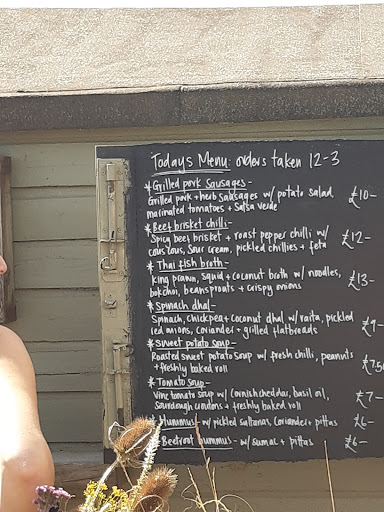 Todays Menu: orders taken 12-3
* Grilled pork Sausages -
Grilled pork + herb sausages w/ potato salad, £10-
marinated tomatoes + Salsa verde
* Beef brisket chilli -
Spicy beef brisket + roast pepper chilli w/ £12-
cous cous, Sour cream, pickled chillies + feta
* Thai fish broth -
King prawn, squid + coconut broth w/ noodles, £13-
bokchoi, beansprouts + crispy onions
* Spinach dhal -
Spinach, chickpea + coconut dhal w/ raita, pickled £9-
red onions, coriander + grilled flatbreads
* Sweet potato soup -
Roasted sweet potato soup w/ fresh chilli, peanuts £7.50
+ freshly baked roll
* Tomato Soup -
Vine tomato soup w/ Cornish cheddar, basil oil, £7-
Sourdough croutons + freshly baked roll
* Hummus - w/ pickled sultanas, coriander + pittas £6-
* Beetroot hummus - w/ sumac + pittas £6-